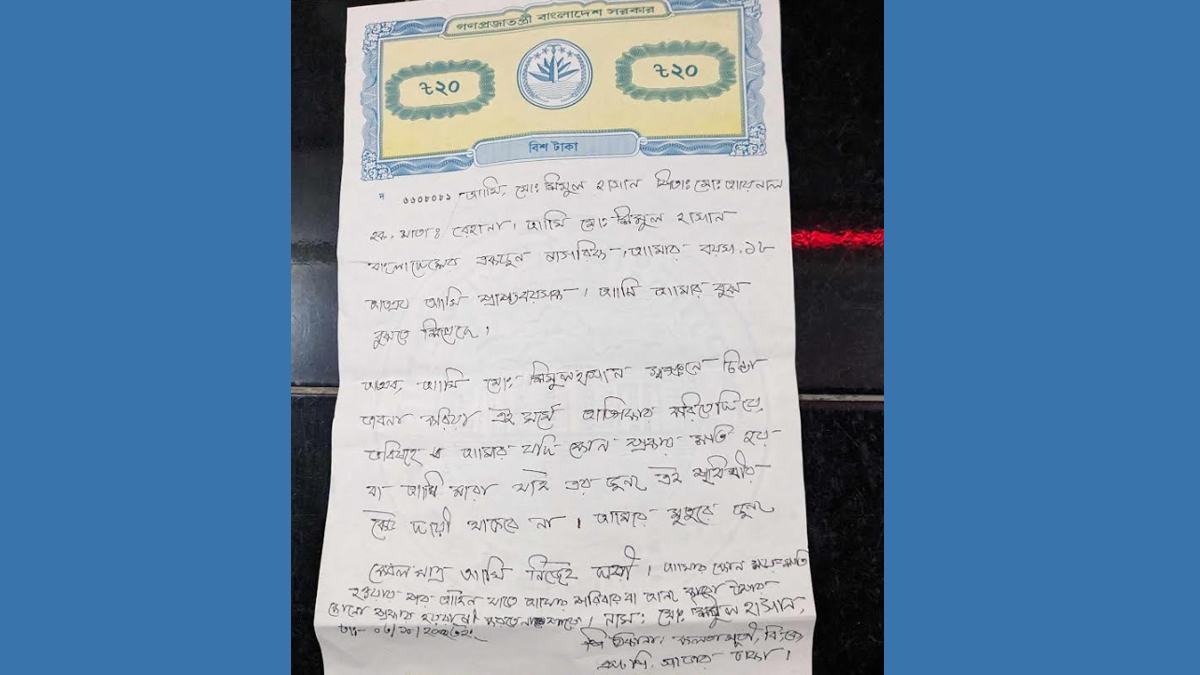 গণপ্রজাতন্ত্রী বাংলাদেশ সরকার
৳২০ ৳২০
বিশ টাকা
আমি, মোঃ শিমুল হাসান পিতাঃ মোঃ আয়নাল
হক, মাতাঃ রেহানা। আমি মোঃ শিমুল হাসান
বাংলাদেশের একজন নাগরিক। আমার বয়স ১৮
অতএব আমি প্রাপ্তবয়স্ক। আমি আমার বুঝ
বুঝতে শিখেছি।
অতএব, আমি মোঃ শিমুল হাসান স্বজ্ঞানে চিন্তা
ভাবনা করিয়া এই মর্মে অঙ্গিকার করিতেছি যে,
ভবিষতে আমার যদি কোন প্রকার ক্ষতি হয়
বা আমি মারা যাই এর জন্য এই পৃথিবীর
কেউ দায়ী থাকবে না। আমার মৃত্যুর জন্য
কেবল মাত্র আমি নিজেই দায়ী। আমার কোন ক্ষয়ক্ষতি
হওয়ার পর আইন যাতে আমার পরিবার বা অন্য কারো উপর
কোনো প্রকার হয়রানি করতে না পারে। নাম: মোঃ শিমুল হাসান,
ঠিকানা:
সাভার ঢাকা।